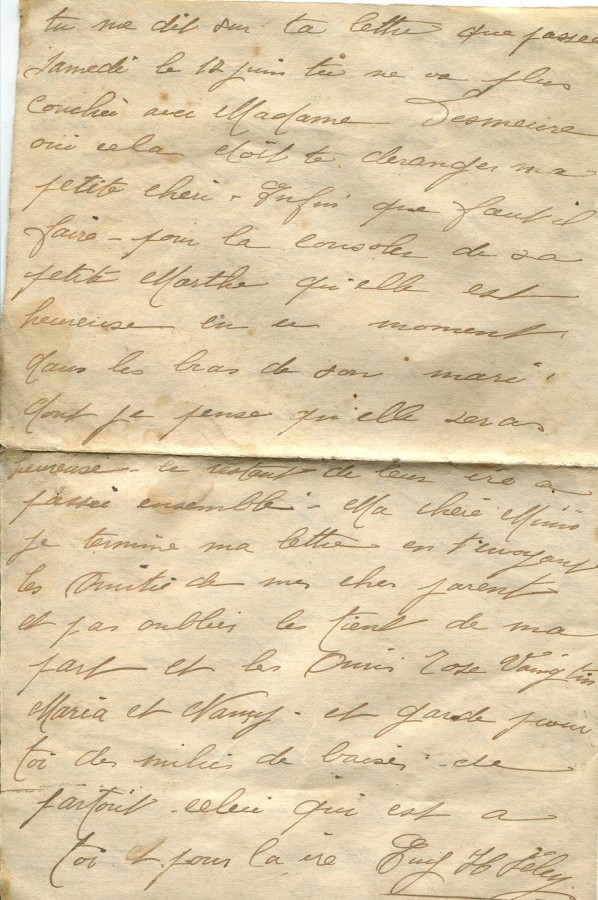 tu me dit sur ta lettre que passée
Samedi le 12 juin tu ne va plus
couchéi avec Madame Desmeure
oui cela doit te deranger ma
petite cheri - Enfin que faut il
faire - pour la consoler de sa
petite Marthe qu'elle est
heureuse en ce moment
dans les bras de son mari
dont je pense qu'elle seras
heureuse - le restant de leur vie a
passéi ensemble - Ma chéri Mimi
je termine ma lettre en t'envoyant
les Amitié de mes cher parent
et pas oublier les tient de ma
part et les Amis Rose
Maria et Nancy - et garde pour
toi des milies de baisés de
partout - celui qui est a
toi et pour la vie Eug H